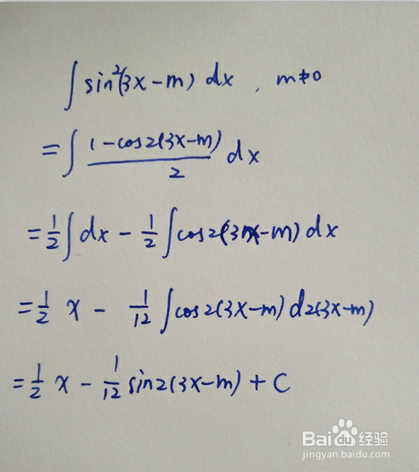 ∫ sin²(3x-m) dx , m≠0
= ∫ (1-cos2(3x-m))/2 dx
= 1/2 ∫ dx - 1/2 ∫ cos2(3x-m) dx
= 1/2 x - 1/12 ∫ cos2(3x-m) d2(3x-m)
= 1/2 x - 1/12 sin2(3x-m) + C
Baidu经验
jingyan.baidu.com